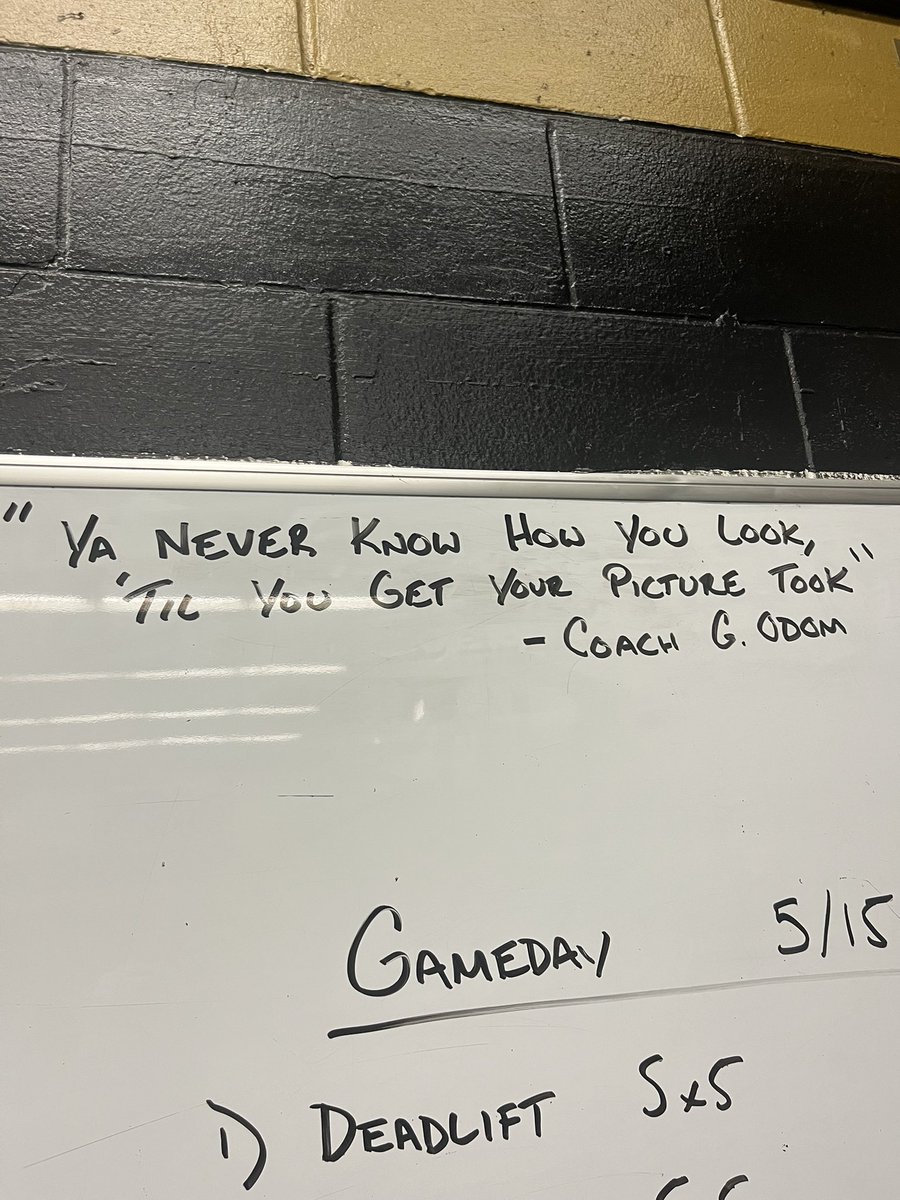 " Ya Never Know How You Look,
'Til You Get Your Picture Took"
- Coach G. Odom
Gameday 5/15
1) Deadlift 5x5